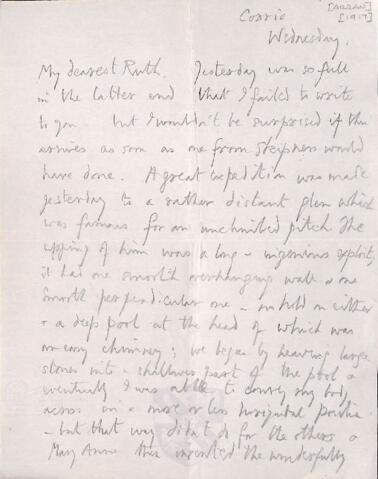 Corrie [ARRAN]
Wednesday. [1917]
My dearest Ruth. Yesterday was so full
in the latter end that I failed to write
to you but I wouldn't be surprised if this
arrives as soon as one from would
have done. A great expedition was made
yesterday to a rather distant glen which
was famous for an unclimbed pitch The
upping of him was a long & ingenious exploit,
it had one smooth overhanging wall & one
smooth perpendicular one - no hold on either
& a deep pool at the head of which was
an easy chimney; we began by heaving large
stones into a shallower part of the pool &
eventually I was able to convey my body
across in a more or less horizontal position
- but that way didn't do for the others &
Mary Anne then invented the wonderfully